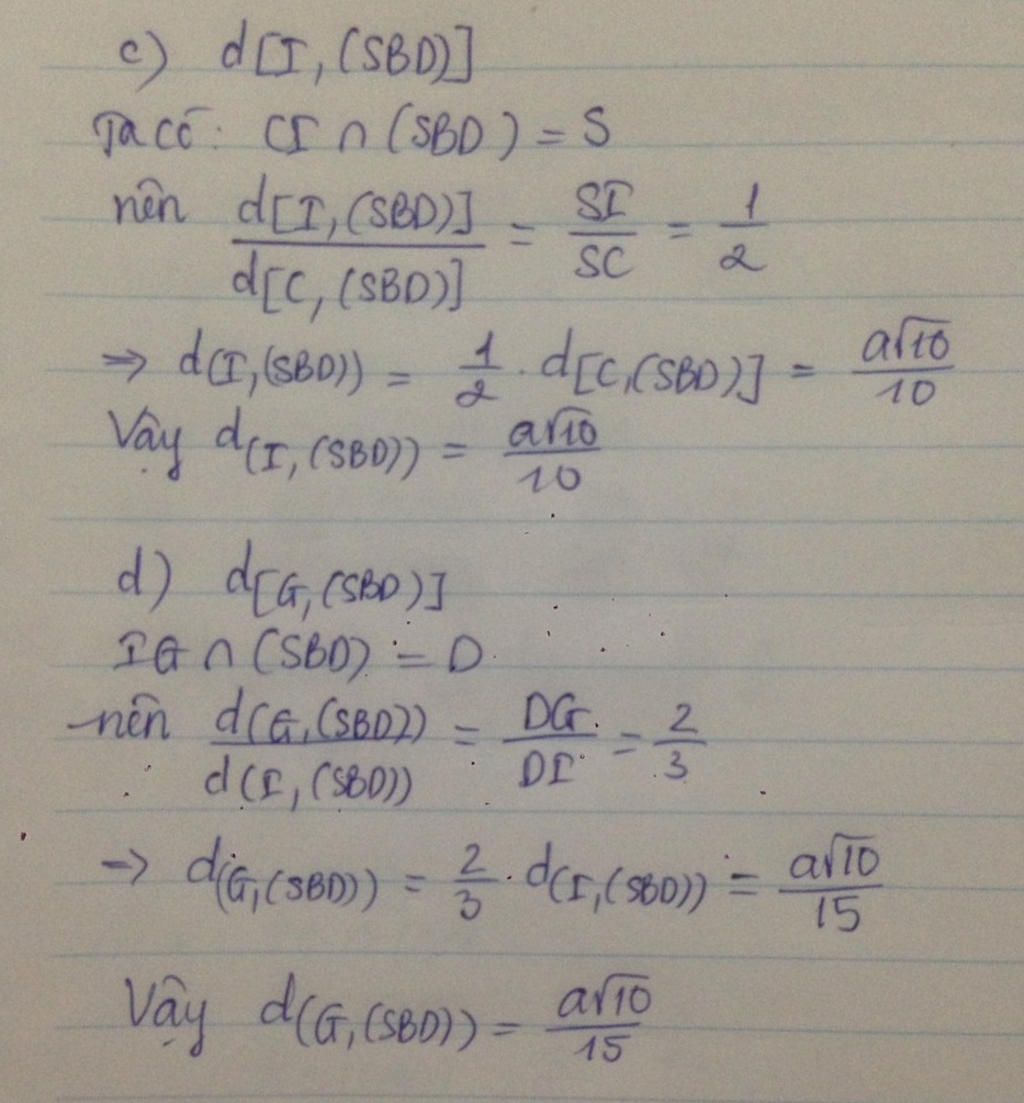 c) d[I, (SBD)]
Ta có: CI ∩ (SBD) = S
nên d[I, (SBD)] / d[C, (SBD)] = SI / SC = 1 / 2
⇒ d(I,(SBD)) = 1/2 . d[C,(SBD)] = a√10 / 10
Vậy d(I, (SBD)) = a√10 / 10
d) d[G, (SBD)]
IG ∩ (SBD) = D
nên d(G,(SBD)) / d(I, (SBD)) = DG / DI = 2 / 3
→ d(G,(SBD)) = 2/3 . d(I,(SBD)) = a√10 / 15
Vậy d(G,(SBD)) = a√10 / 15